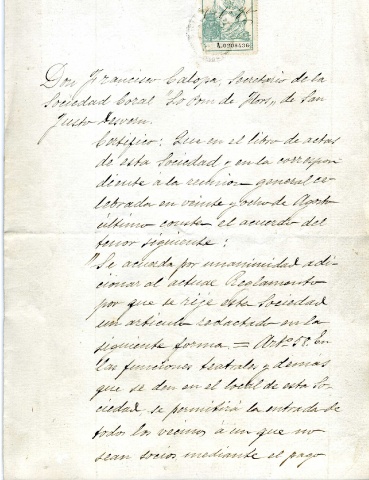 A.0208436
Don Francisco Calopa, Secretario de la
Sociedad Coral "Lo Pom de Flors", de San
Justo Desvern.
Certifico: Que en el libro de actas
de esta Sociedad y en la correspon
diente á la reunion general ce-
lebrada en veinte y ocho de Agosto
último consta el acuerdo del
tenor siguiente:
"Se acuerda por unanimidad adi-
cionar al actual Reglamento
por que se rije esta Sociedad
un artículo redactado en la
siguiente forma. = Art. En
las funciones teatrales y demás
que se den en el local de esta So-
ciedad se permitirá la entrada de
todos los vecinos á un que no
sean socios mediante el pago